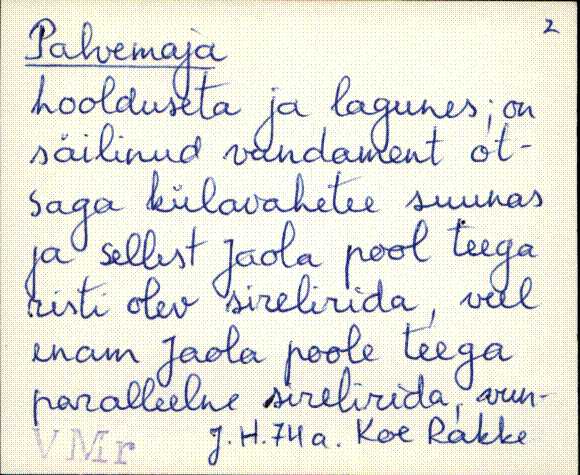 2
Palvemaja
hoolduseta ja lagunes; on
säilinud vundament ot-
saga külavahetee suunas
ja sellest Jaola pool teega
risti olev sirelirida, veel
enam Jaola poole teega
paralleelne sirelirida, vun-
VMr J.H. 74 a. Koe Rakke